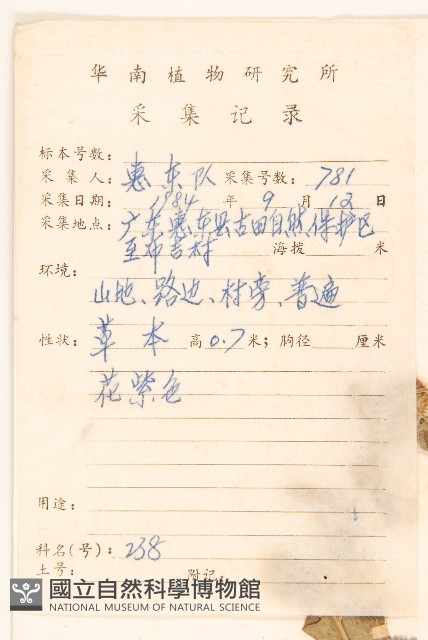 华南植物研究所
采集记录
标本号数：
采集人：惠东队 采集号数：781
采集日期：1984年9月12日
采集地点：广东惠东县古田自然保护区
至布吉村 海拨 米
环境：
山地、路边、村旁、普遍
性状：草本 高0.7米；胸径 厘米
花紫色
用途：
科名(号)：238
土号： 附记：
國立自然科學博物館
NATIONAL MUSEUM OF NATURAL SCIENCE